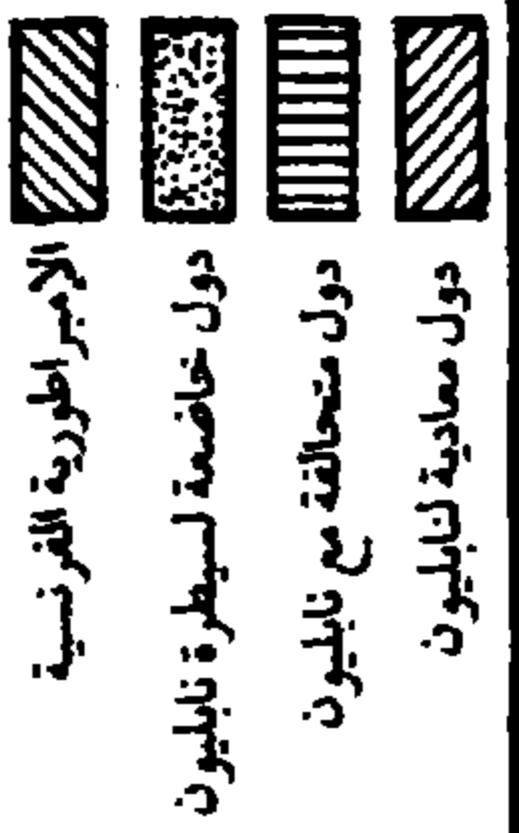 الامبراطورية الفرنسية
دول خاضعة لسيطرة نابليون
دول متحالفة مع نابليون
دول معادية لنابليون